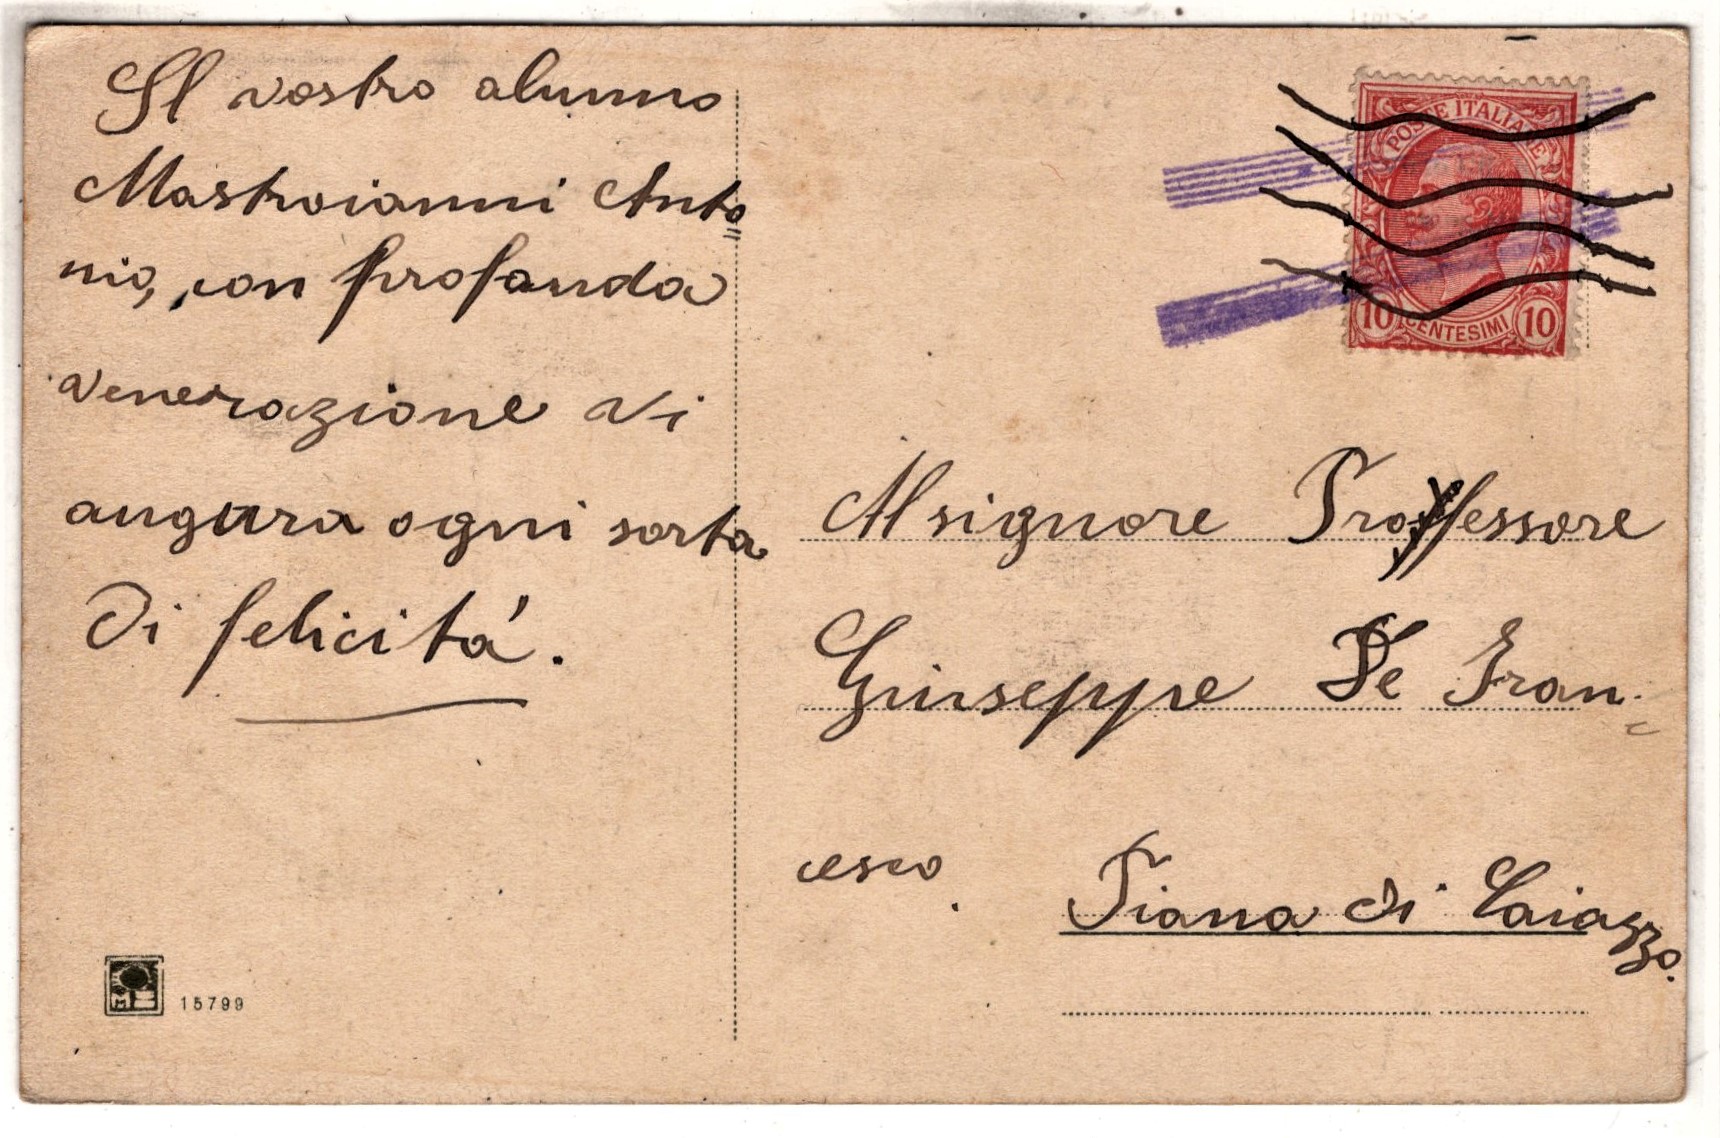 Il vostro alunno
Mastroianni Anto
nio, con profonda
venerazione vi
augura ogni sorta
di felicitá.
POSTE ITALIANE
10 CENTESIMI 10
Al signore Professore
Giuseppe De Fran=
cesco.
Piana di Caiazzo.
15799